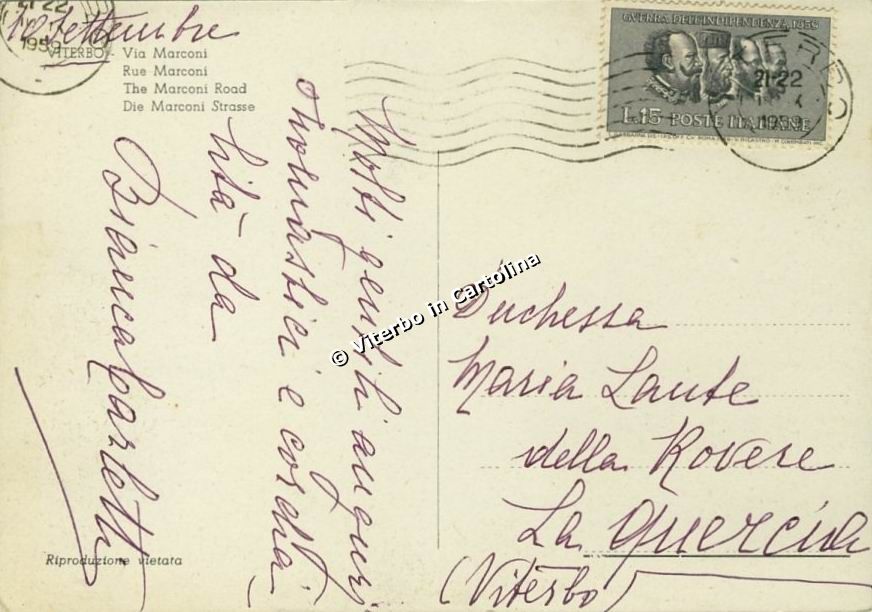 12 Settembre
VITERBO - Via Marconi
Rue Marconi
The Marconi Road
Die Marconi Strasse
21-22
1959
GUERRA DELL'INDIPENDENZA, 1859
L.15 POSTE ITALIANE
21-22
1959
Molti gentili auguri
onomastici e cordia
lità da
Bianca Carletti
Duchessa
Maria Lante
della Rovere
La Quercia
(Viterbo)
Riproduzione vietata
© Viterbo in Cartolina